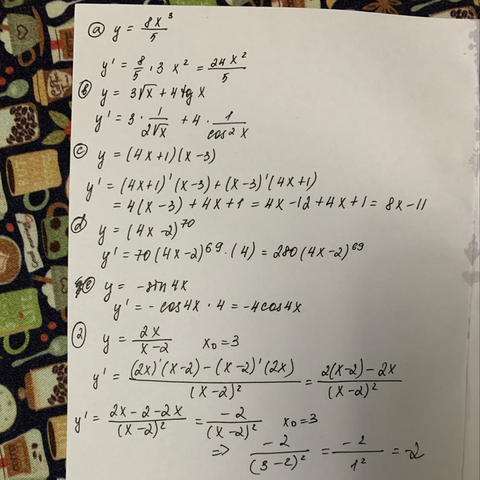 a) y = 8x³/5
y' = 8/5 · 3x² = 24x²/5
b) y = 3√x + 4tgx
y' = 3 · 1/(2√x) + 4 · 1/(cos²x)
c) y = (4x+1)(x-3)
y' = (4x+1)'(x-3) + (x-3)'(4x+1)
= 4(x-3) + 4x+1 = 4x-12+4x+1 = 8x-11
d) y = (4x-2)⁷⁰
y' = 70(4x-2)⁶⁹ · (4) = 280(4x-2)⁶⁹
e) y = -sin4x
y' = -cos4x · 4 = -4cos4x
2) y = 2x/(x-2) x₀=3
y' = ((2x)'(x-2) - (x-2)'(2x))/(x-2)² = (2(x-2)-2x)/(x-2)²
y' = (2x-2-2x)/(x-2)² = -2/(x-2)² x₀=3
=> -2/(3-2)² = -2/1² = -2